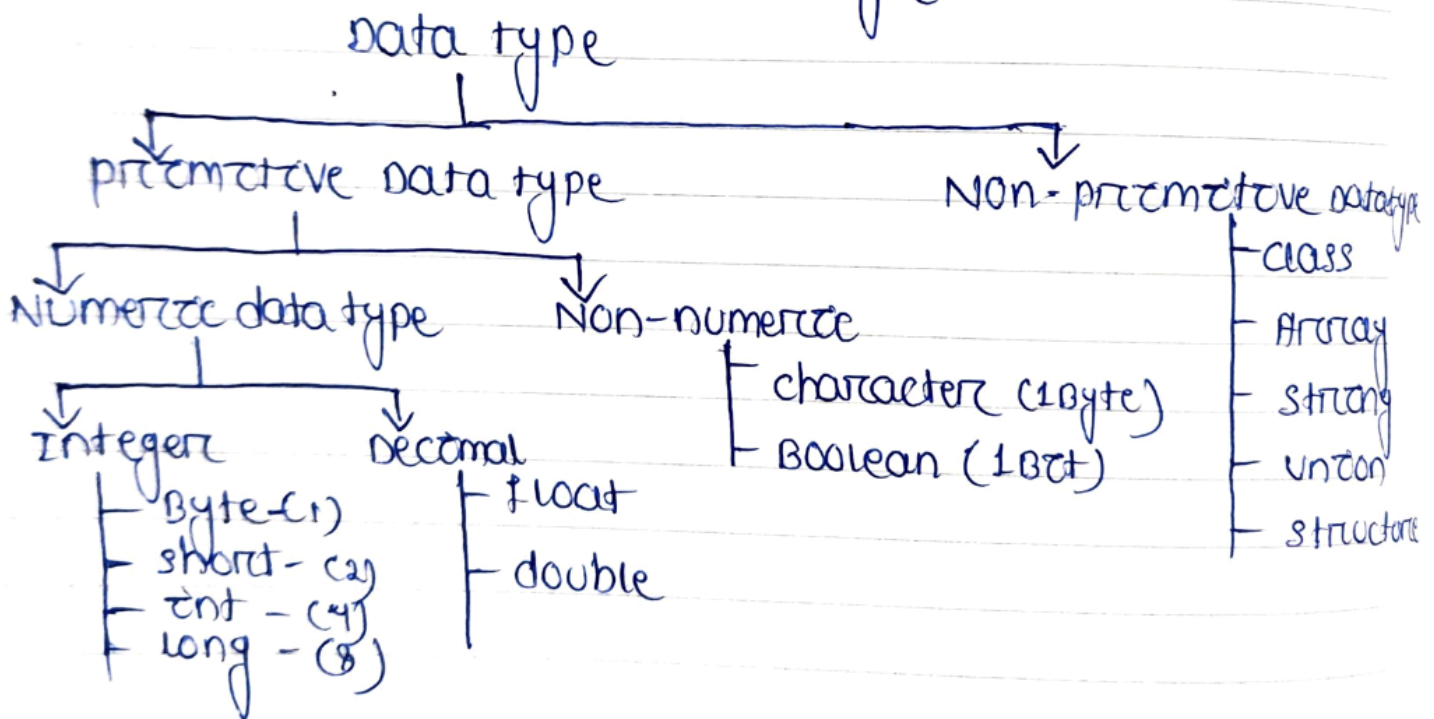 Data type
primitive Data type
Non-primitive Datatype
Numeric data type
Non-numeric
Integer
Decimal
Byte-(1)
short - (2)
int - (4)
Long - (8)
float
double
character (1Byte)
Boolean (1Bit)
class
Array
String
union
structure